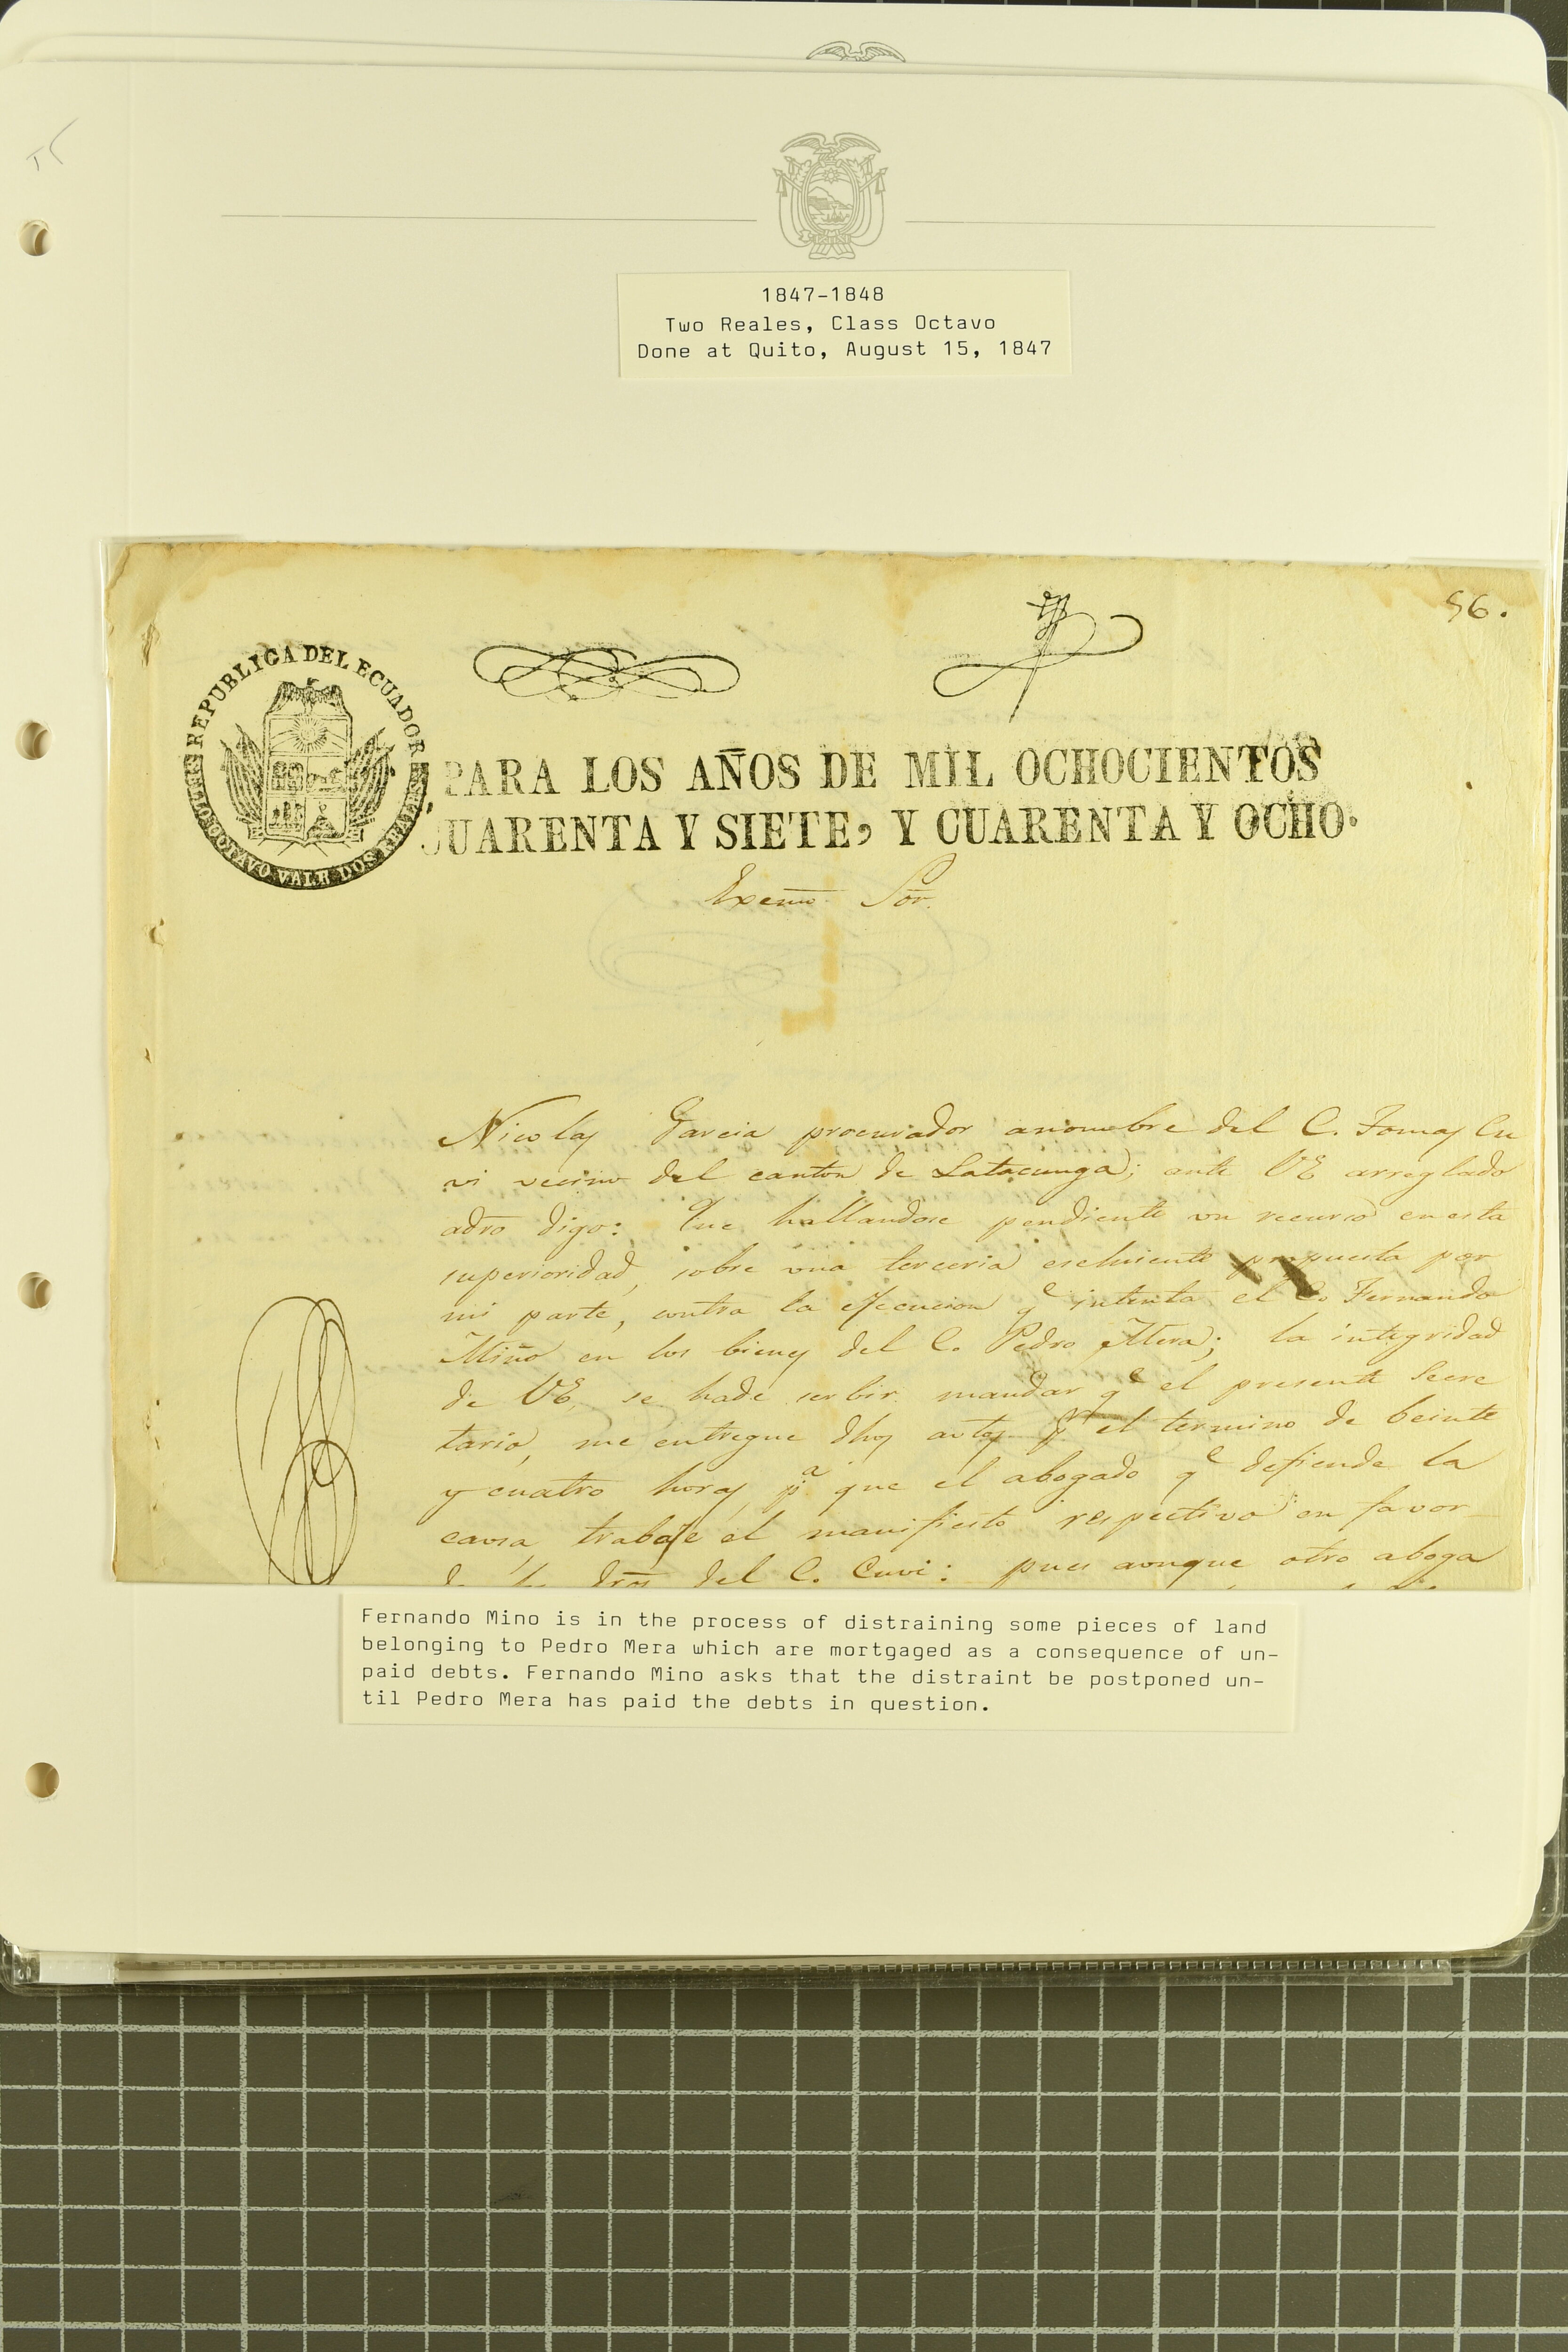 1847-1848
Two Reales, Class Octavo
Done at Quito, August 15, 1847
56.
REPUBLICA DEL ECUADOR
SELLO OCTAVO VALE DOS REALES
PARA LOS AÑOS DE MIL OCHOCIENTOS
CUARENTA Y SIETE, Y CUARENTA Y OCHO.
Exemo Sor.
Nicolas Garcia procurador anombre del C. Tomas Cu
vi vecino del canton de Latacunga; ante VE arreglado
adro digo: Que hallandose pendiente un recurso en esta
superioridad, sobre una terceria escluiente propuesta por
mi parte, contra la ejecucion qe intenta el C. Fernando
Miño en los bienes del C. Pedro Mera; la integridad
de VE. se hade serbir mandar qe el presente Secre
tario, me entregue dhos autos pr el termino de beinte
y cuatro horas, pa que el abogado qe defiende la
causa trabaje el manifiesto respectivo en favor
dros del C. Cuvi: pues aunque otro aboga
Fernando Mino is in the process of distraining some pieces of land
belonging to Pedro Mera which are mortgaged as a consequence of un-
paid debts. Fernando Mino asks that the distraint be postponed un-
til Pedro Mera has paid the debts in question.